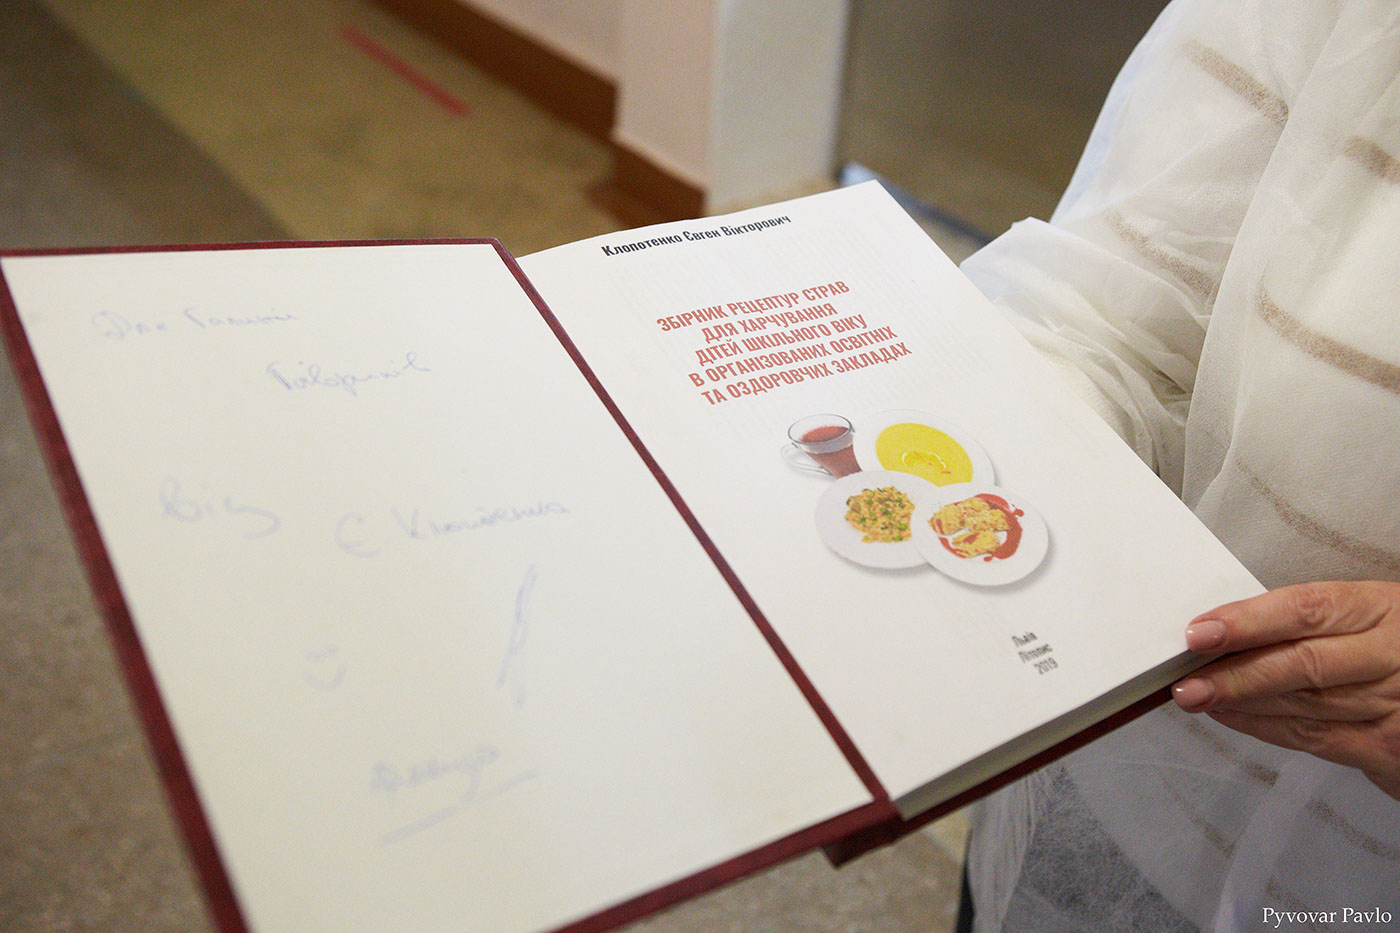 Для Галини
Гаврилів
Від Є Клопотенка
Клопотенко Євген Вікторович
ЗБІРНИК РЕЦЕПТУР СТРАВ
ДЛЯ ХАРЧУВАННЯ
ДІТЕЙ ШКІЛЬНОГО ВІКУ
В ОРГАНІЗОВАНИХ ОСВІТНІХ
ТА ОЗДОРОВЧИХ ЗАКЛАДАХ
Львів
Літопис
2019
Pyvovar Pavlo